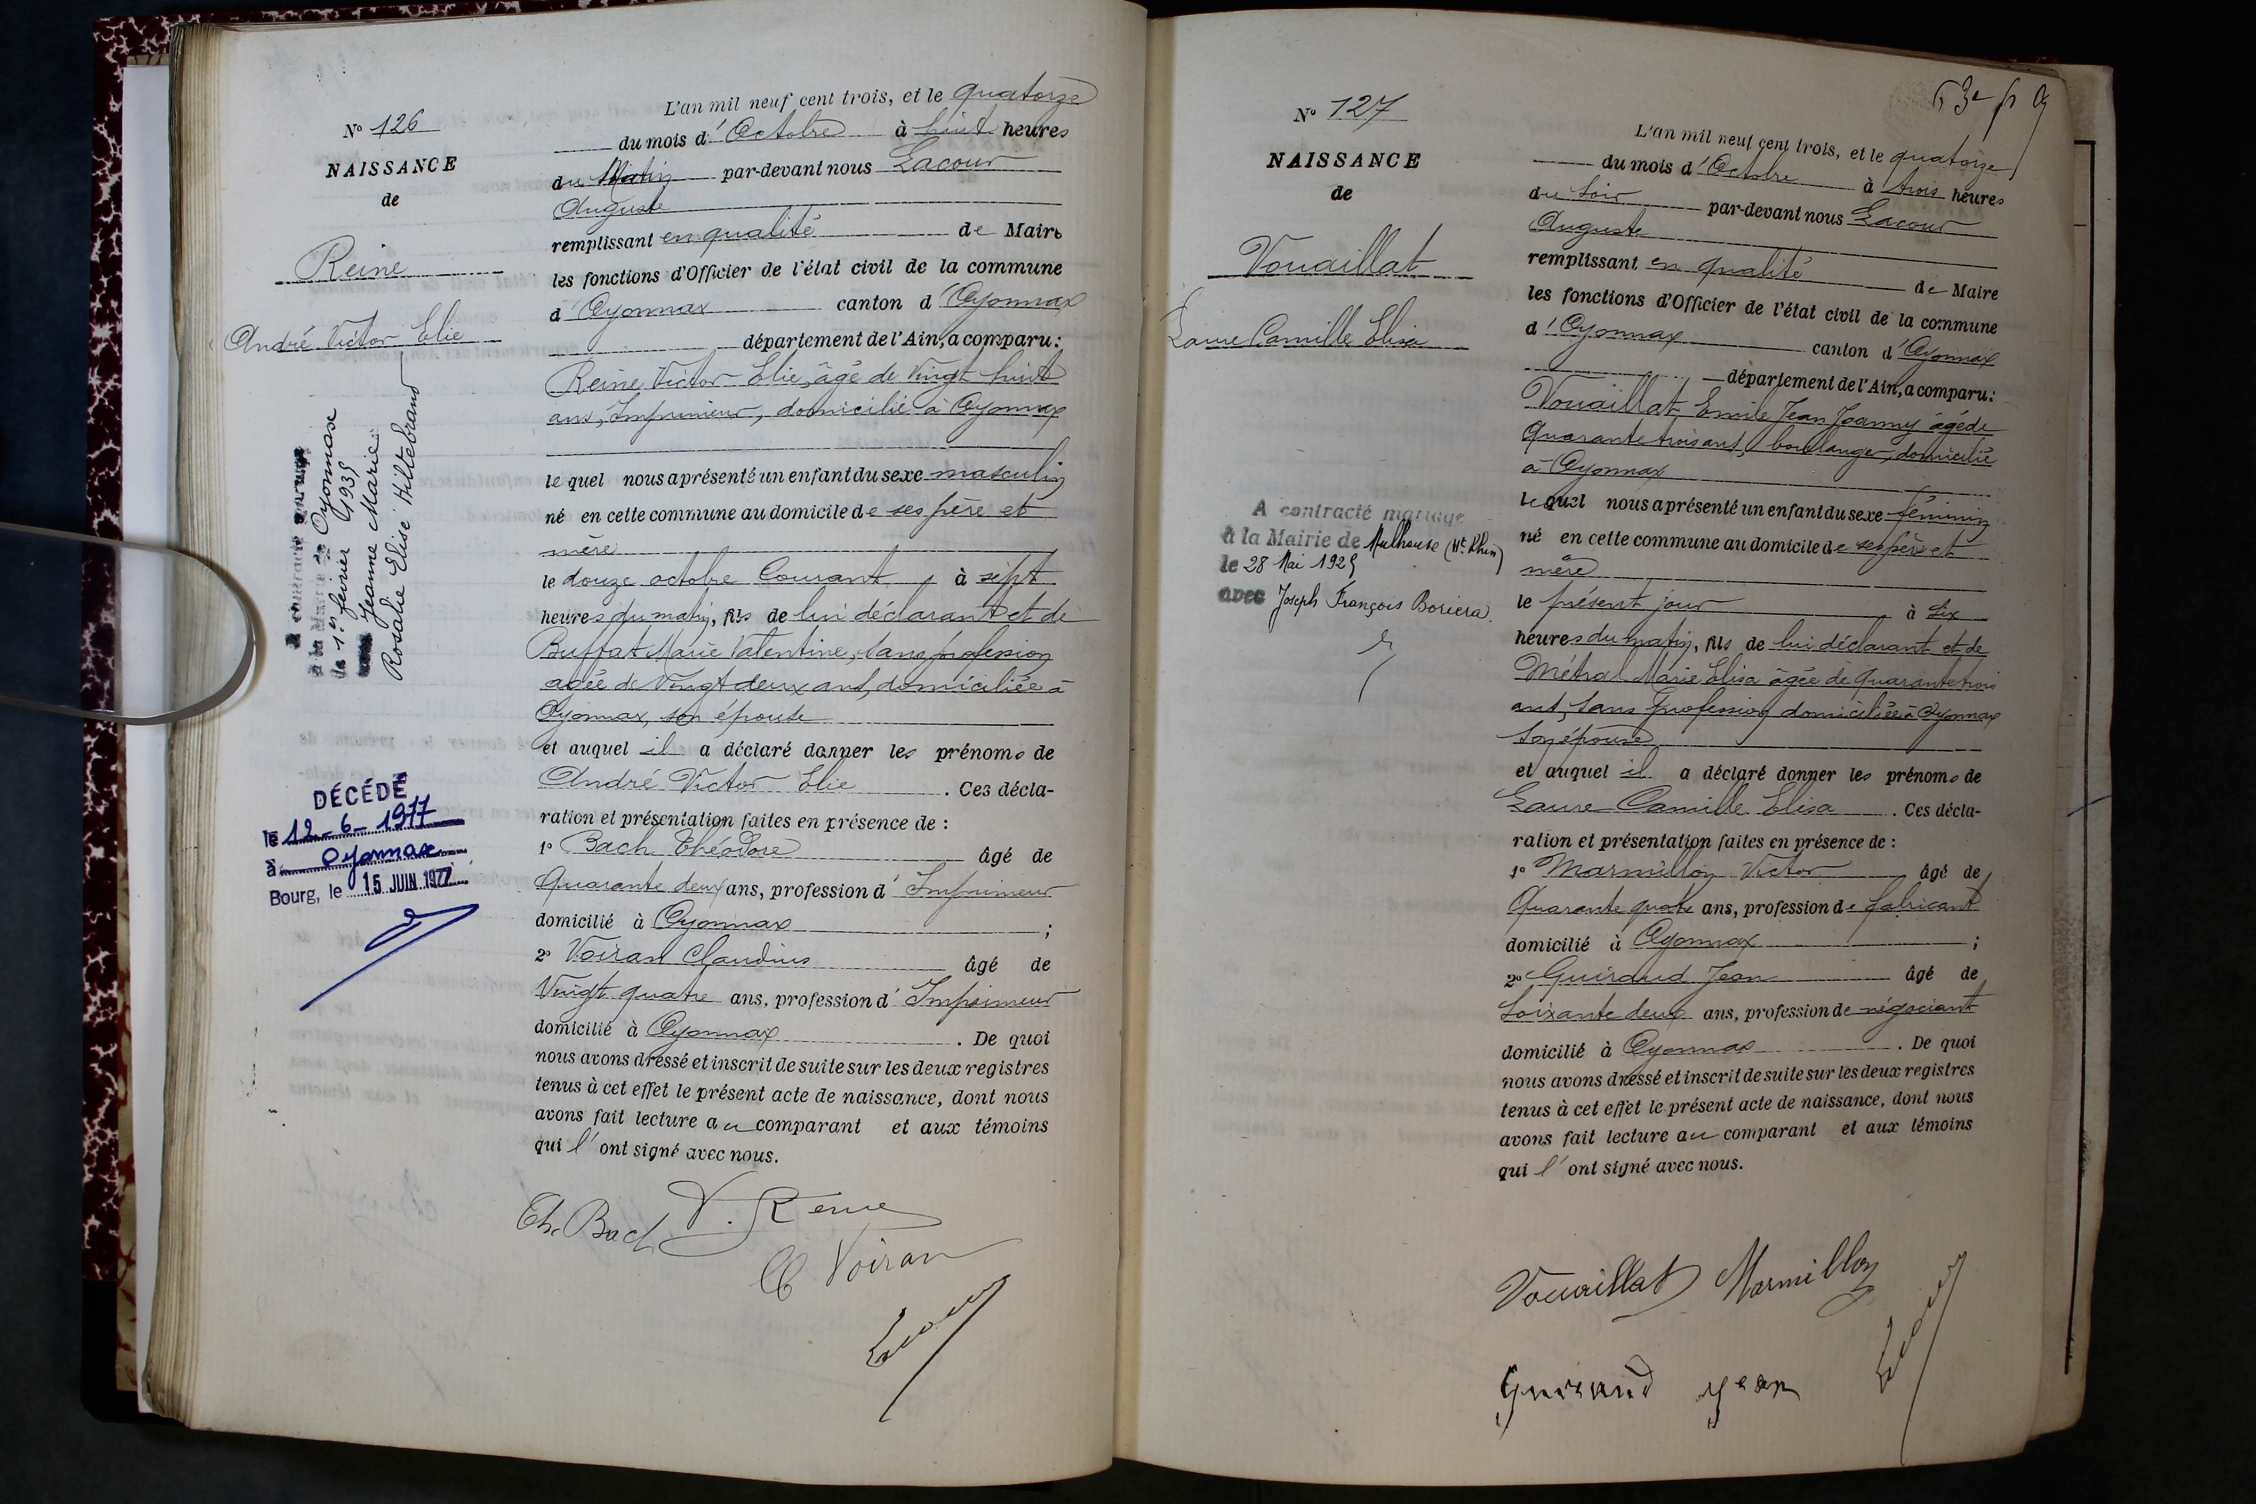 N° 126
NAISSANCE
de
Reine
André Victor Elie
A contracté mariage
à la Mairie de Oyonnax
le 1er février 1935
avec Jeanne Marie
Rosalie Elise Hiltebrand
DÉCÉDÉ
le 12-6-1977
à Oyonnax
Bourg, le 15 JUIN 1977
L'an mil neuf cent trois, et le quatorze
du mois d'Octobre à huit heures
du Matin par-devant nous Lacour
Auguste
remplissant en qualité de Maire
les fonctions d'Officier de l'état civil de la commune
d'Oyonnax canton d'Oyonnax
département de l'Ain, a comparu:
Reine Victor Elie, âgé de Vingt huit
ans, Imprimeur, domicilié à Oyonnax
le quel nous a présenté un enfant du sexe masculin
né en cette commune au domicile de ses père et
mère
le douze octobre Courant, à sept
heures du matin, fils de lui déclarant et de
Buffat Marie Valentine, sans profession
agée de Vingt deux ans, domiciliée à
Oyonnax, son épouse
et auquel il a déclaré donner les prénoms de
André Victor Elie. Ces décla-
ration et présentation faites en présence de :
1° Bach Théodore âgé de
Quarante deux ans, profession d'Imprimeur
domicilié à Oyonnax ;
2° Voiran Claudius âgé de
Vingt quatre ans, profession d'Imprimeur
domicilié à Oyonnax. De quoi
nous avons dressé et inscrit de suite sur les deux registres
tenus à cet effet le présent acte de naissance, dont nous
avons fait lecture au comparant et aux témoins
qui l'ont signé avec nous.
Th. Bach V. Reine
Cl Voiran
Lacour
N° 127
NAISSANCE
de
Vouaillat
Laure Camille Elisa
A contracté mariage
à la Mairie de Mulhouse (Ht Rhin)
le 28 Mai 1925
avec Joseph François Boriera.
L'an mil neuf cent trois, et le quatorze
du mois d'Octobre à trois heures
du Soir par-devant nous Lacour
Auguste
remplissant en qualité de Maire
les fonctions d'Officier de l'état civil de la commune
d'Oyonnax canton d'Oyonnax
département de l'Ain, a comparu:
Vouaillat Emile Jean Joanny âgé de
Quarante trois ans, boulanger, domicilié
à Oyonnax
le quel nous a présenté un enfant du sexe féminin
né en cette commune au domicile de ses père et
mère
le présent jour à six
heures du matin, fils de lui déclarant et de
Métral Marie Elisa âgée de Quarante trois
ans, sans profession domiciliée à Oyonnax
son épouse
et auquel il a déclaré donner les prénoms de
Laure Camille Elisa. Ces décla-
ration et présentation faites en présence de :
1° Marmillon Victor âgé de
Quarante quatre ans, profession de fabricant
domicilié à Oyonnax ;
2° Guiraud Jean âgé de
Soixante deux ans, profession de négociant
domicilié à Oyonnax. De quoi
nous avons dressé et inscrit de suite sur les deux registres
tenus à cet effet le présent acte de naissance, dont nous
avons fait lecture au comparant et aux témoins
qui l'ont signé avec nous.
Vouaillat Marmillon
Lacour
Guiraud Jean